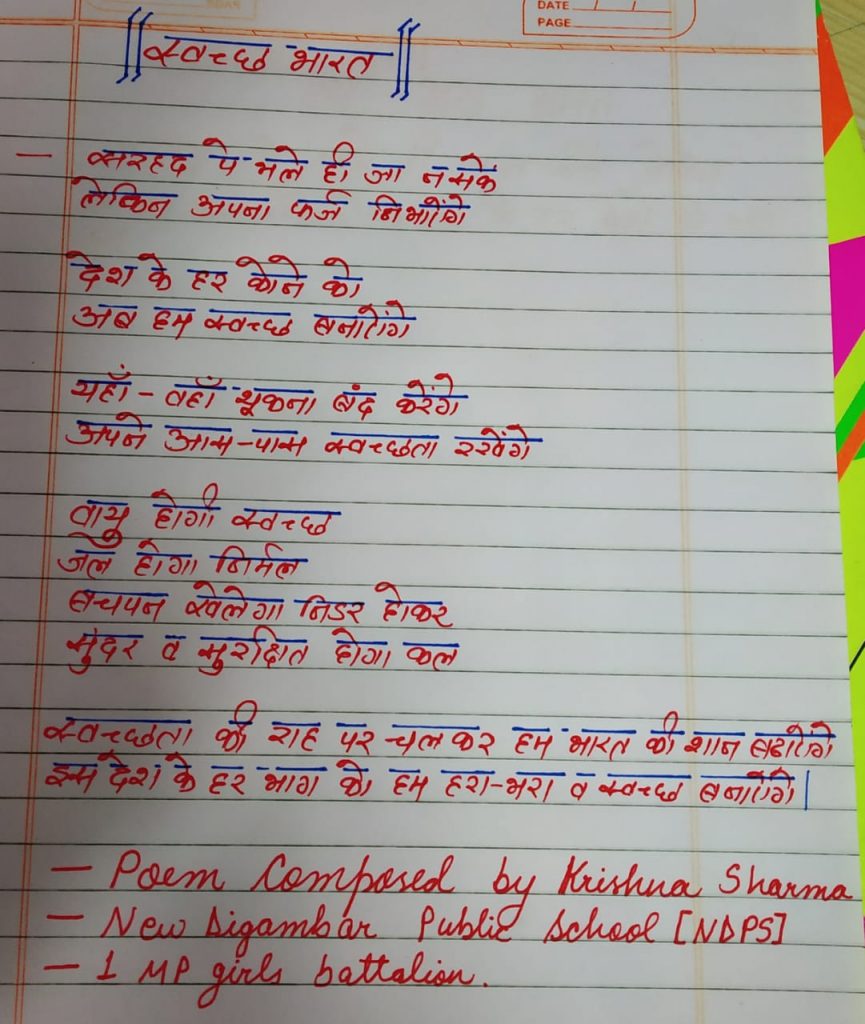 DATE
PAGE
|| स्वच्छ भारत ||
— सरहद पे भले ही जा न सके
लेकिन अपना फर्ज निभाएंगे
देश के हर कोने को
अब हम स्वच्छ बनाएंगे
यहाँ - वहाँ थूकना बंद करेंगे
अपने आस-पास स्वच्छता रखेंगे
वायु होगी स्वच्छ
जल होगा निर्मल
बचपन खेलेगा निडर होकर
सुंदर व सुरक्षित होगा कल
स्वच्छता की राह पर चलकर हम भारत की शान बढाएंगे
इस देश के हर भाग को हम हरा-भरा व स्वच्छ बनाएंगे|
— Poem Composed by Krishna Sharma
— New Digambar Public School [NDPS]
— 1 MP girls battalion.